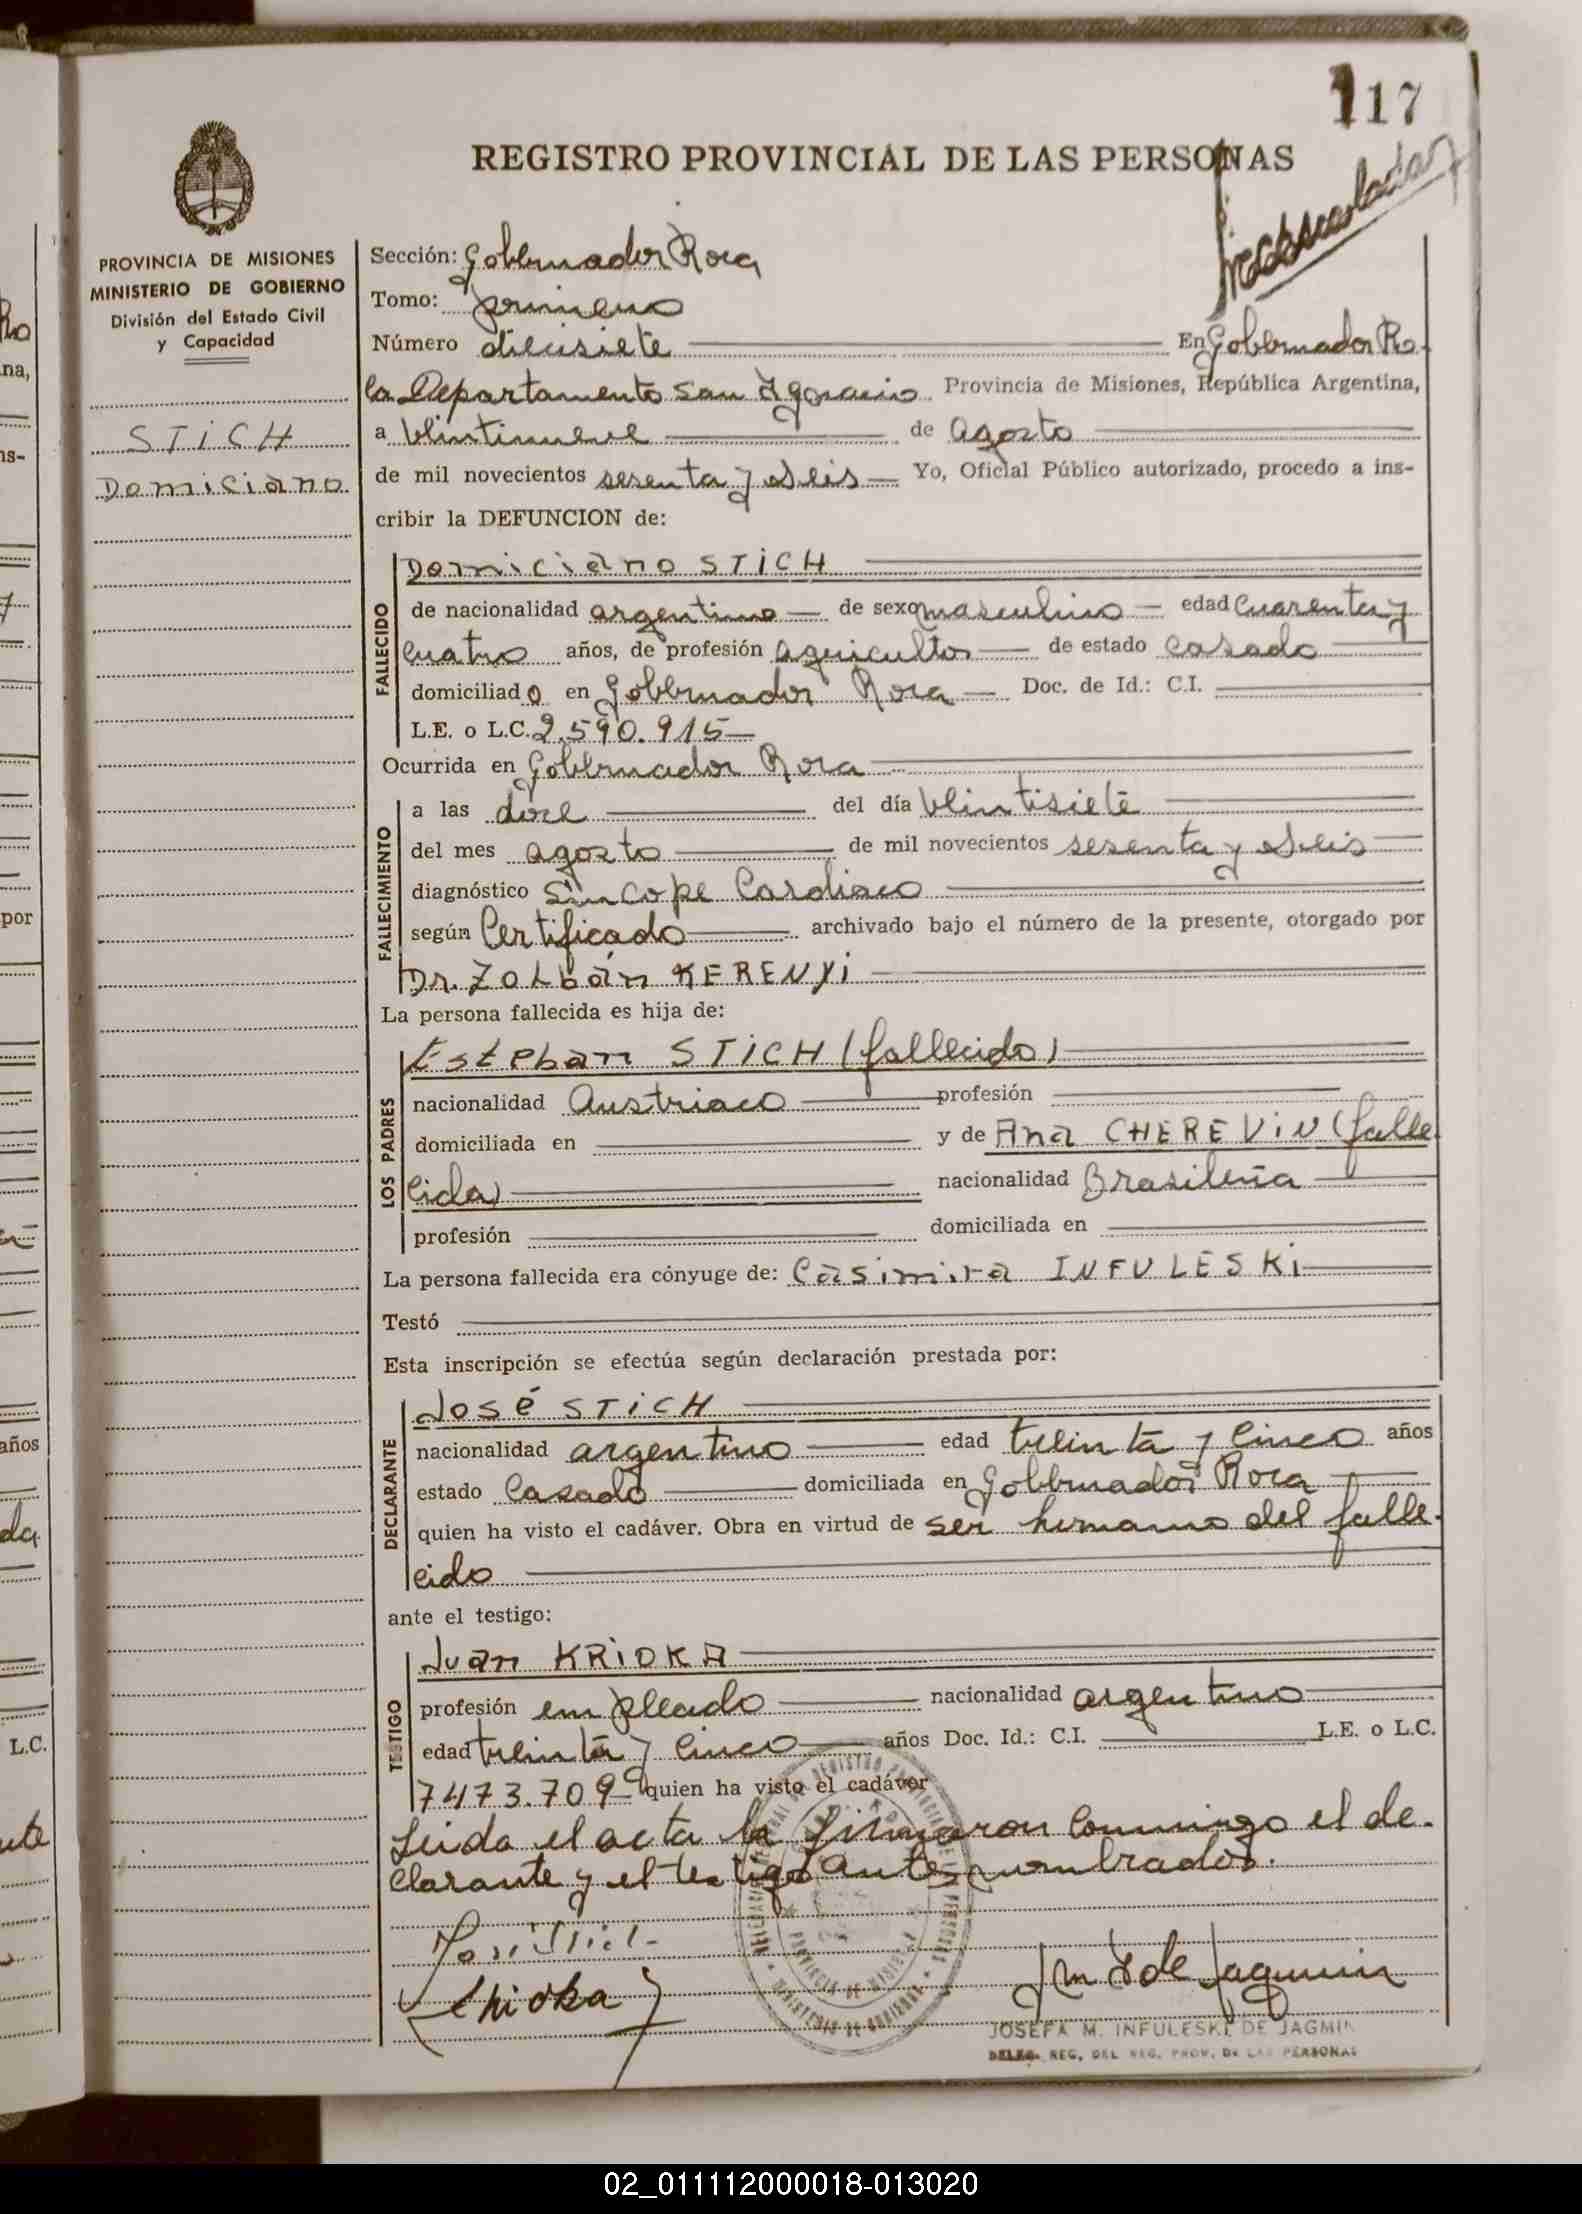 117
REGISTRO PROVINCIAL DE LAS PERSONAS
PROVINCIA DE MISIONES
MINISTERIO DE GOBIERNO
División del Estado Civil
y Capacidad
STICH
Domiciano
Sección: Gobernador Roca
Tomo: primero
Número diecisiete En Gobernador Ro-
ca Departamento San Ignacio Provincia de Misiones, República Argentina,
a veintinueve de agosto
de mil novecientos sesenta y seis Yo, Oficial Público autorizado, procedo a ins-
cribir la DEFUNCION de:
FALLECIDO
Domiciano STICH
de nacionalidad argentino de sexo masculino edad cuarenta y
cuatro años, de profesión agricultor de estado casado
domiciliado en Gobernador Roca Doc. de Id.: C.I.
L.E. o L.C. 2.590.915
Ocurrida en Gobernador Roca
FALLECIMIENTO
a las doce del día veintisiete
del mes agosto de mil novecientos sesenta y seis
diagnóstico Síncope Cardiaco
según Certificado archivado bajo el número de la presente, otorgado por
Dr. ZOLbán KERENYi
La persona fallecida es hija de:
LOS PADRES
Esteban STICH (fallecido)
nacionalidad Austriaco profesión
domiciliada en y de Ana CHEREVIN (falle
cida) nacionalidad Brasileña
profesión domiciliada en
La persona fallecida era cónyuge de: Casimira INFULESKI
Testó
Esta inscripción se efectúa según declaración prestada por:
DECLARANTE
José STICH
nacionalidad argentino edad treinta y cinco años
estado Casado domiciliada en Gobernador Roca
quien ha visto el cadáver. Obra en virtud de ser hermano del falle-
cido
ante el testigo:
TESTIGO
Juan KRIOKA
profesión empleado nacionalidad argentino
edad treinta y cinco años Doc. Id.: C.I. L.E. o L.C.
7473.709 quien ha visto el cadáver
Leida el acta la firmaron conmigo el de-
clarante y el testigo antes nombrados.
José Stich
Krioka
JOSEFA M. INFULESKI DE JAGMIN
DELEG. REG. DEL REG. PROV. DE LAS PERSONAS
na,
por
años
L.C.
02_011112000018-013020